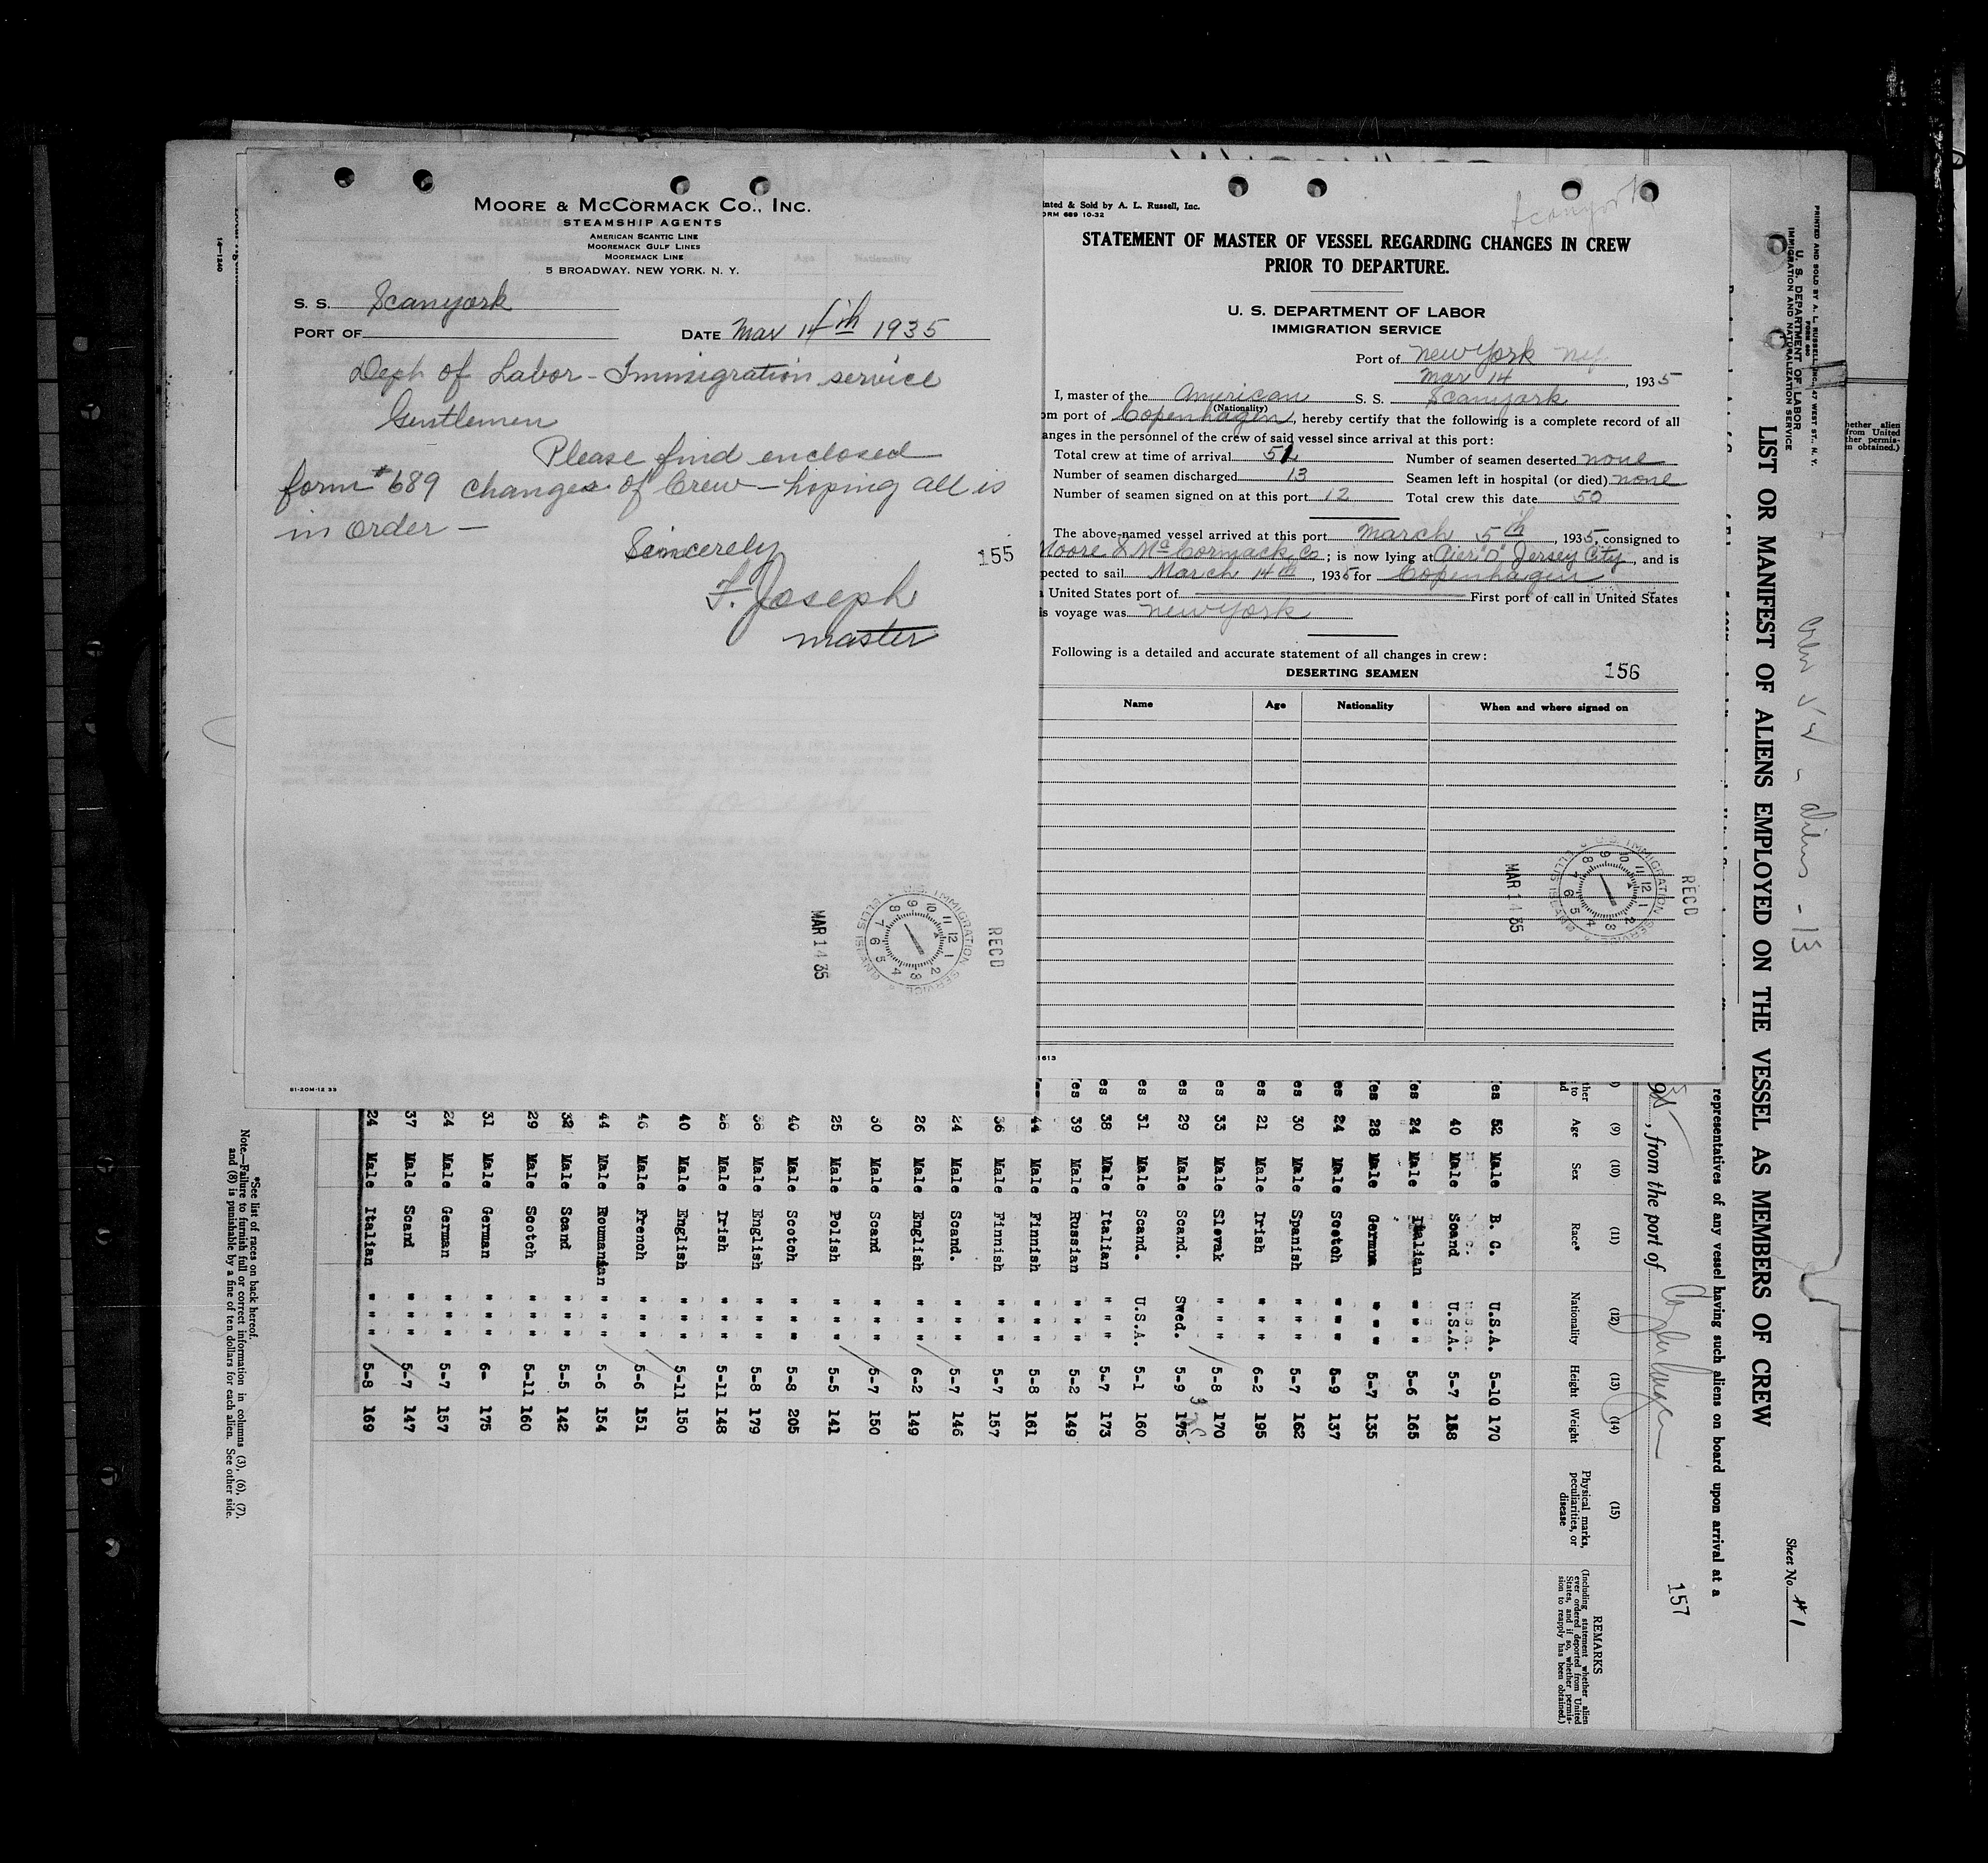 MOORE & MCCORMACK CO., INC.
STEAMSHIP AGENTS
AMERICAN SCANTIC LINE
MOOREMACK GULF LINES
MOOREMACK LINE
5 BROADWAY. NEW YORK. N. Y.
S. S. Scanyork
PORT OF
DATE Mar 14th 1935
Dept of Labor - Immigration service
Gentlemen
Please find enclosed
form #689 changes of Crew - hoping all is
in order -
Sincerely
F. Joseph
master
155
RECD
U.S. IMMIGRATION SERVICE ELLIS ISLAND
MAR 14 35
81-20M-12 33
inted & Sold by A. L. Russell, Inc.
ORM 689 10-32
Scanyork
STATEMENT OF MASTER OF VESSEL REGARDING CHANGES IN CREW
PRIOR TO DEPARTURE.
U. S. DEPARTMENT OF LABOR
IMMIGRATION SERVICE
Port of New York NY
Mar 14, 1935
I, master of the American S. S. Scanyork
(Nationality)
om port of Copenhagen, hereby certify that the following is a complete record of all
anges in the personnel of the crew of said vessel since arrival at this port:
Total crew at time of arrival 51 Number of seamen deserted none
Number of seamen discharged 13 Seamen left in hospital (or died) none
Number of seamen signed on at this port 12 Total crew this date 50
The above-named vessel arrived at this port March 5th, 1935, consigned to
Moore & McCormack Co; is now lying at Pier "D" Jersey City, and is
pected to sail March 14th, 1935 for Copenhagen
United States port of First port of call in United States
s voyage was New York
Following is a detailed and accurate statement of all changes in crew:
DESERTING SEAMEN
156
Name Age Nationality When and where signed on
RECD
U.S. IMMIGRATION SERVICE ELLIS ISLAND
MAR 14 35
1613
PRINTED AND SOLD BY A. L. RUSSELL, INC., 47 WEST ST., N. Y.
FORM 680
U. S. DEPARTMENT OF LABOR
IMMIGRATION AND NATURALIZATION SERVICE
Sheet No. #1
aliens - 13
LIST OR MANIFEST OF ALIENS EMPLOYED ON THE VESSEL AS MEMBERS OF CREW
representatives of any vessel having such aliens on board upon arrival at a
, from the port of Copenhagen
157
(9) (10) (11) (12) (13) (14) (15)
Age Sex Race* Nationality Height Weight Physical marks, peculiarities, or disease
REMARKS
(Including statement whether alien
ever ordered deported from United
States, and if so, whether permis-
sion to reapply has been obtained.)
es 52 Male B. C. U.S.A. 5-10 170
40 Male Scand U.S.A. 5-7 158
es 24 Male Italian " " " 5-6 165
es 28 Male German " " " 5-7 135
es 24 Male Scotch " " " 5-9 137
es 30 Male Spanish " " " 5-7 162
es 21 Male Irish " " " 6-2 195
es 33 Male Slovak " " " 5-8 170
es 29 Male Scand. Swed. 5-9 175
es 31 Male Scand. U.S.A. 5-1 160
es 38 Male Italian " " " 5-7 173
es 39 Male Russian " " " 5-2 149
44 Male Finnish " " " 5-8 161
36 Male Finnish " " " 5-7 157
24 Male Scand. " " " 5-7 146
26 Male English " " " 6-2 149
30 Male Scand " " " 5-7 150
25 Male Polish " " " 5-5 141
40 Male Scotch " " " 5-8 205
38 Male English " " " 5-8 179
38 Male Irish " " " 5-11 148
40 Male English " " " 5-11 150
46 Male French " " " 5-6 151
44 Male Roumanian " " " 5-6 154
32 Male Scand " " " 5-5 142
29 Male Scotch " " " 5-11 160
31 Male German " " " 6- 175
24 Male German " " " 5-7 157
37 Male Scand " " " 5-7 147
24 Male Italian " " " 5-8 169
*See list of races on back hereof.
Note.—Failure to furnish full or correct information in columns (3), (6), (7),
and (8) is punishable by a fine of ten dollars for each alien. See other side.
14—1240
hether alien
from United
ther permis-
n obtained.)